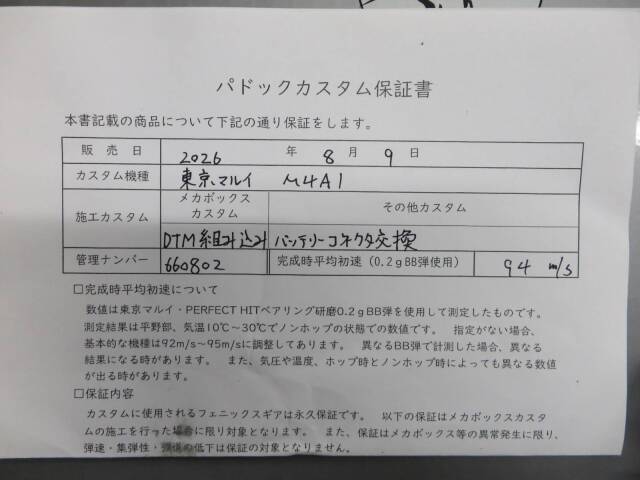 パドックカスタム保証書
本書記載の商品について下記の通り保証をします。
販 売 日 2026 年 8 月 9 日
カスタム機種 東京マルイ M4A1
施工カスタム メカボックスカスタム その他カスタム
DTM組み込み バッテリーコネクタ交換
管理ナンバー 660802 完成時平均初速（0.2gBB弾使用） 94 m/s
□完成時平均初速について
数値は東京マルイ・PERFECT HITベアリング研磨0.2gBB弾を使用して測定したものです。
測定結果は平野部、気温10℃～30℃でノンホップの状態での数値です。 指定がない場合、
基本的な機種は92m/s～95m/sに調整してあります。 異なるBB弾で計測した場合、異なる
結果になる時があります。 また、気圧や温度、ホップ時とノンホップ時によっても異なる数値
が出る時があります。
□保証内容
カスタムに使用されるフェニックスギアは永久保証です。 以下の保証はメカボックスカスタ
ムの施工を行った場合に限り対象となります。 また、保証はメカボックス等の異常発生に限り、
弾速・集弾性・の低下は保証の対象となりません。